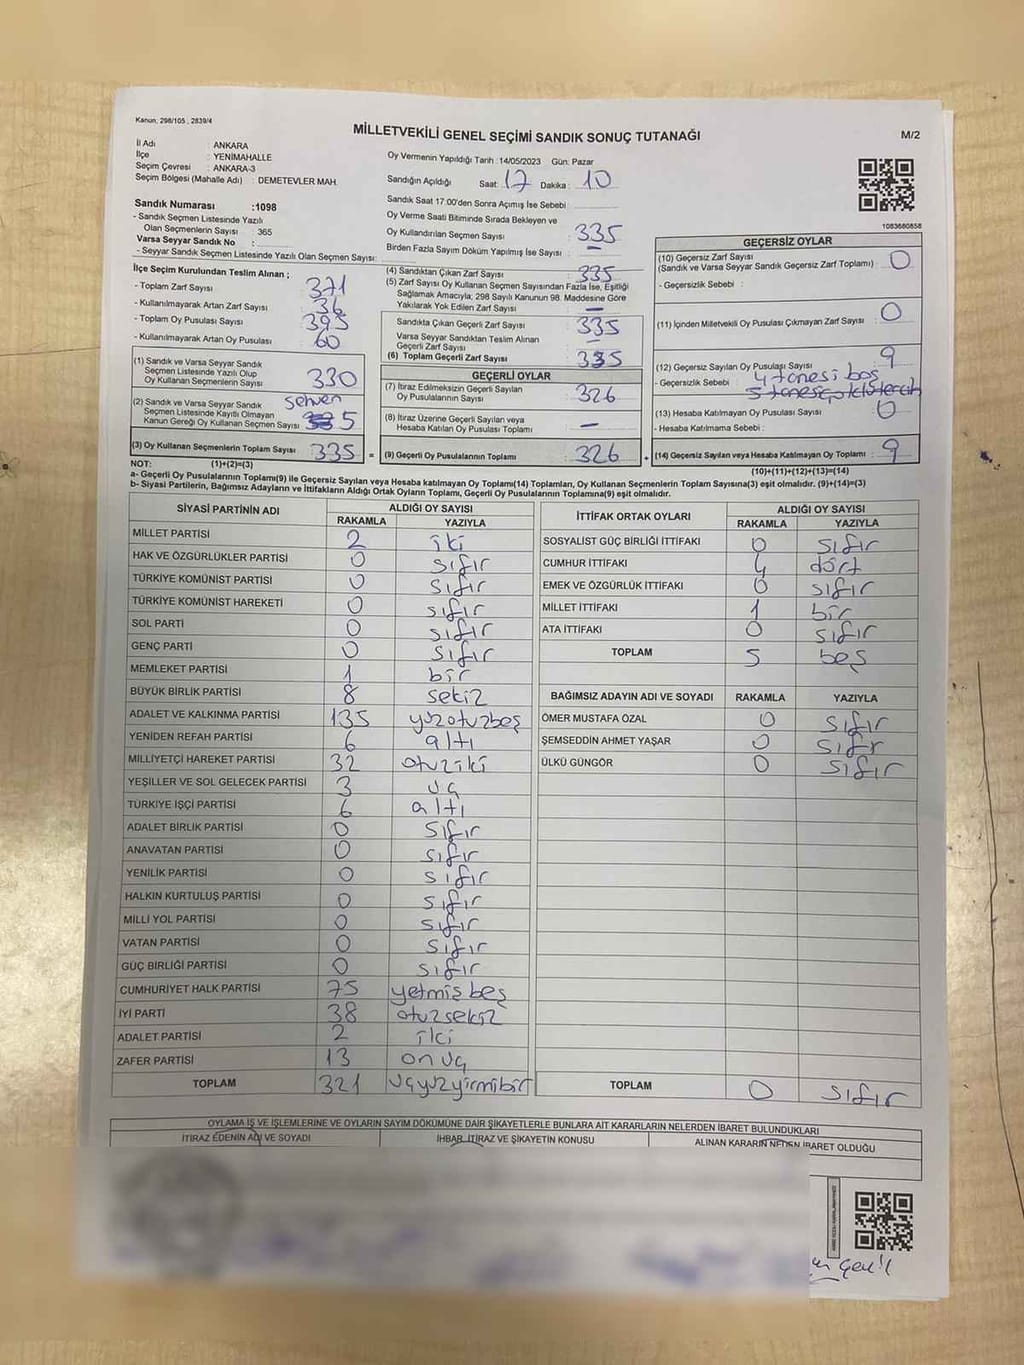 Kanun; 298/105 , 2839/4
MİLLETVEKİLİ GENEL SEÇİMİ SANDIK SONUÇ TUTANAĞI
M/2
İl Adı : ANKARA
İlçe : YENİMAHALLE
Seçim Çevresi : ANKARA-3
Seçim Bölgesi (Mahalle Adı) : DEMETEVLER MAH.
Sandık Numarası :1098
- Sandık Seçmen Listesinde Yazılı
Olan Seçmenlerin Sayısı : 365
Varsa Seyyar Sandık No :
- Seyyar Sandık Seçmen Listesinde Yazılı Olan Seçmen Sayısı:
Oy Vermenin Yapıldığı Tarih :14/05/2023 Gün: Pazar
Sandığın Açıldığı Saat: 17 Dakika : 10
Sandık Saat 17:00'den Sonra Açımış İse Sebebi :
Oy Verme Saati Bitiminde Sırada Bekleyen ve
Oy Kullandırılan Seçmen Sayısı : 335
Birden Fazla Sayım Döküm Yapılmış İse Sayısı : –
1083680858
İlçe Seçim Kurulundan Teslim Alınan ;
- Toplam Zarf Sayısı : 371
- Kullanılmayarak Artan Zarf Sayısı : 36
- Toplam Oy Pusulası Sayısı : 395
- Kullanılmayarak Artan Oy Pusulası : 60
(1) Sandık ve Varsa Seyyar Sandık
Seçmen Listesinde Yazılı Olup
Oy Kullanan Seçmenlerin Sayısı : 330
(2) Sandık ve Varsa Seyyar Sandık sehven
Seçmen Listesinde Kayıtlı Olmayan
Kanun Gereği Oy Kullanan Seçmen Sayısı : 5
(3) Oy Kullanan Seçmenlerin Toplam Sayısı : 335
(4) Sandıktan Çıkan Zarf Sayısı : 335
(5) Zarf Sayısı Oy Kullanan Seçmen Sayısından Fazla İse, Eşitliği
Sağlamak Amacıyla; 298 Sayılı Kanunun 98. Maddesine Göre
Yakılarak Yok Edilen Zarf Sayısı : –
Sandıkta Çıkan Geçerli Zarf Sayısı : 335
Varsa Seyyar Sandıktan Teslim Alınan
Geçerli Zarf Sayısı : –
(6) Toplam Geçerli Zarf Sayısı : 335
GEÇERLİ OYLAR
(7) İtiraz Edilmeksizin Geçerli Sayılan
Oy Pusulalarının Sayısı : 326
(8) İtiraz Üzerine Geçerli Sayılan veya
Hesaba Katılan Oy Pusulası Toplamı : –
= (9) Geçerli Oy Pusulalarının Toplamı : 326
GEÇERSİZ OYLAR
(10) Geçersiz Zarf Sayısı
(Sandık ve Varsa Seyyar Sandık Geçersiz Zarf Toplamı) : 0
- Geçersizlik Sebebi :
(11) İçinden Milletvekili Oy Pusulası Çıkmayan Zarf Sayısı : 0
(12) Geçersiz Sayılan Oy Pusulası Sayısı : 9
- Geçersizlik Sebebi : 4 tanesi boş
5 tanesi çoklu tercih
(13) Hesaba Katılmayan Oy Pusulası Sayısı : 0
- Hesaba Katılmama Sebebi :
+ (14) Geçersiz Sayılan veya Hesaba Katılmayan Oy Toplamı : 9
NOT: (1)+(2)=(3)
(10)+(11)+(12)+(13)=(14)
a- Geçerli Oy Pusulalarının Toplamı(9) ile Geçersiz Sayılan veya Hesaba katılmayan Oy Toplamı(14) Toplamları, Oy Kullanan Seçmenlerin Toplam Sayısına(3) eşit olmalıdır. (9)+(14)=(3)
b- Siyasi Partilerin, Bağımsız Adayların ve İttifakların Aldığı Ortak Oyların Toplamı, Geçerli Oy Pusulalarının Toplamına(9) eşit olmalıdır.
SİYASİ PARTİNİN ADI ALDIĞI OY SAYISI
RAKAMLA YAZIYLA
MİLLET PARTİSİ 2 iki
HAK VE ÖZGÜRLÜKLER PARTİSİ 0 sıfır
TÜRKİYE KOMÜNİST PARTİSİ 0 sıfır
TÜRKİYE KOMÜNİST HAREKETİ 0 sıfır
SOL PARTİ 0 sıfır
GENÇ PARTİ 0 sıfır
MEMLEKET PARTİSİ 1 bir
BÜYÜK BİRLİK PARTİSİ 8 sekiz
ADALET VE KALKINMA PARTİSİ 135 yüzotuzbeş
YENİDEN REFAH PARTİSİ 6 altı
MİLLİYETÇİ HAREKET PARTİSİ 32 otuziki
YEŞİLLER VE SOL GELECEK PARTİSİ 3 üç
TÜRKİYE İŞÇİ PARTİSİ 6 altı
ADALET BİRLİK PARTİSİ 0 sıfır
ANAVATAN PARTİSİ 0 sıfır
YENİLİK PARTİSİ 0 sıfır
HALKIN KURTULUŞ PARTİSİ 0 sıfır
MİLLİ YOL PARTİSİ 0 sıfır
VATAN PARTİSİ 0 sıfır
GÜÇ BİRLİĞİ PARTİSİ 0 sıfır
CUMHURİYET HALK PARTİSİ 75 yetmişbeş
İYİ PARTİ 38 otuzsekiz
ADALET PARTİSİ 2 iki
ZAFER PARTİSİ 13 onüç
TOPLAM 321 üçyüzyirmibir
İTTİFAK ORTAK OYLARI ALDIĞI OY SAYISI
RAKAMLA YAZIYLA
SOSYALİST GÜÇ BİRLİĞİ İTTİFAKI 0 sıfır
CUMHUR İTTİFAKI 4 dört
EMEK VE ÖZGÜRLÜK İTTİFAKI 0 sıfır
MİLLET İTTİFAKI 1 bir
ATA İTTİFAKI 0 sıfır
TOPLAM 5 beş
BAĞIMSIZ ADAYIN ADI VE SOYADI RAKAMLA YAZIYLA
ÖMER MUSTAFA ÖZAL 0 sıfır
ŞEMSEDDİN AHMET YAŞAR 0 sıfır
ÜLKÜ GÜNGÖR 0 sıfır
TOPLAM 0 sıfır
OYLAMA İŞ VE İŞLEMLERİNE VE OYLARIN SAYIM DÖKÜMÜNE DAİR ŞİKAYETLERLE BUNLARA AİT KARARLARIN NELERDEN İBARET BULUNDUKLARI
İTİRAZ EDENİN ADI VE SOYADI İHBAR, İTİRAZ VE ŞİKAYETİN KONUSU ALINAN KARARIN NEDEN İBARET OLDUĞU